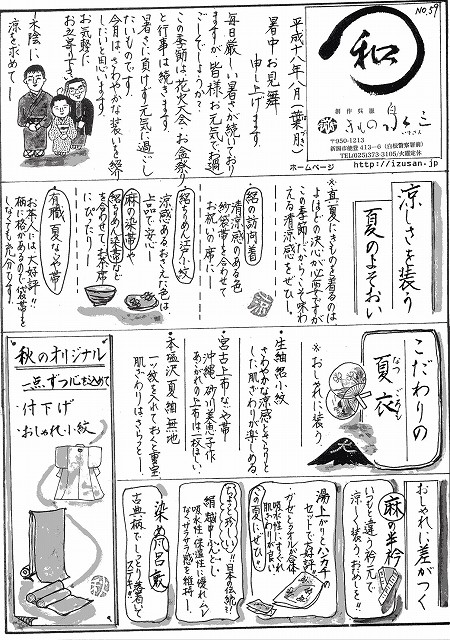 NO.59
和
創作呉服
きもの泉三
いずさん
〒950-1213
新潟市能登413-6(白根警察署前)
TEL(025)373-3105/火曜定休
ホームページ http://izusan.jp
平成十八年八月(葉月)
暑中お見舞
申し上げます
毎日厳しい暑さが続いており
ますが皆様お元気でお過
ごしでしょうか?
この季節は、花火大会、お盆祭り
と行事は続きます。
暑さに負けず元気に過ごし
たいものです!
今月は、さわやかな装いを紹介
したいと思います。
お気軽に
お立寄り下さい。
―木陰に
涼を求めて―
涼しさを装う
夏のよそおい
※真夏にきものを着るのは
よほどの決心が必要ですが
この季節だからこそ味わ
える清涼感をぜひ。
・絽の訪問着
清涼感のある色
紗袋帯と合わせて
お祝いの席に―
・絽ちりめん江戸小紋
涼感あるおさえた色は
上品で安心―
・麻の染帯や
絽ちりめん染帯など
を合わせてお茶席
にぴったり
・有職 夏なごや帯
お茶人には大好評!!
柄に格があるので袋帯を
しなくても充分です。
こだわりの
夏衣
なつごろも
※おしゃれに装う
・生紬絽小紋
さわやかな涼感とさらりと
した肌ざわりが楽しめる
・宮古上布なごや帯
沖縄 砂川美恵子作
あこがれの上布は一枚ほしい
・本塩沢夏紬無地
一ッ紋を入れておくと重宝
肌ざわりはさらりと。
秋のオリジナル
一点ずつ心を込めて
・付下げ
・おしゃれ小紋
おしゃれに差がつく
麻の半衿
いつもと違う衿元で
涼しく装う、おためしを!!
湯上がりとハンカチの
セットで好評!
ガーゼとタオルが合体
吸水性にすぐれ
肌ざわりが良い
この夏にぜひ。
ちょっと珍しい!! 日本伝統
絹越中ふんどし
吸水性、保温性に優れ、ムレ
なくサラサラ感を維持―
染め風呂敷
古典柄でしっとり落着いて
ステキ!!